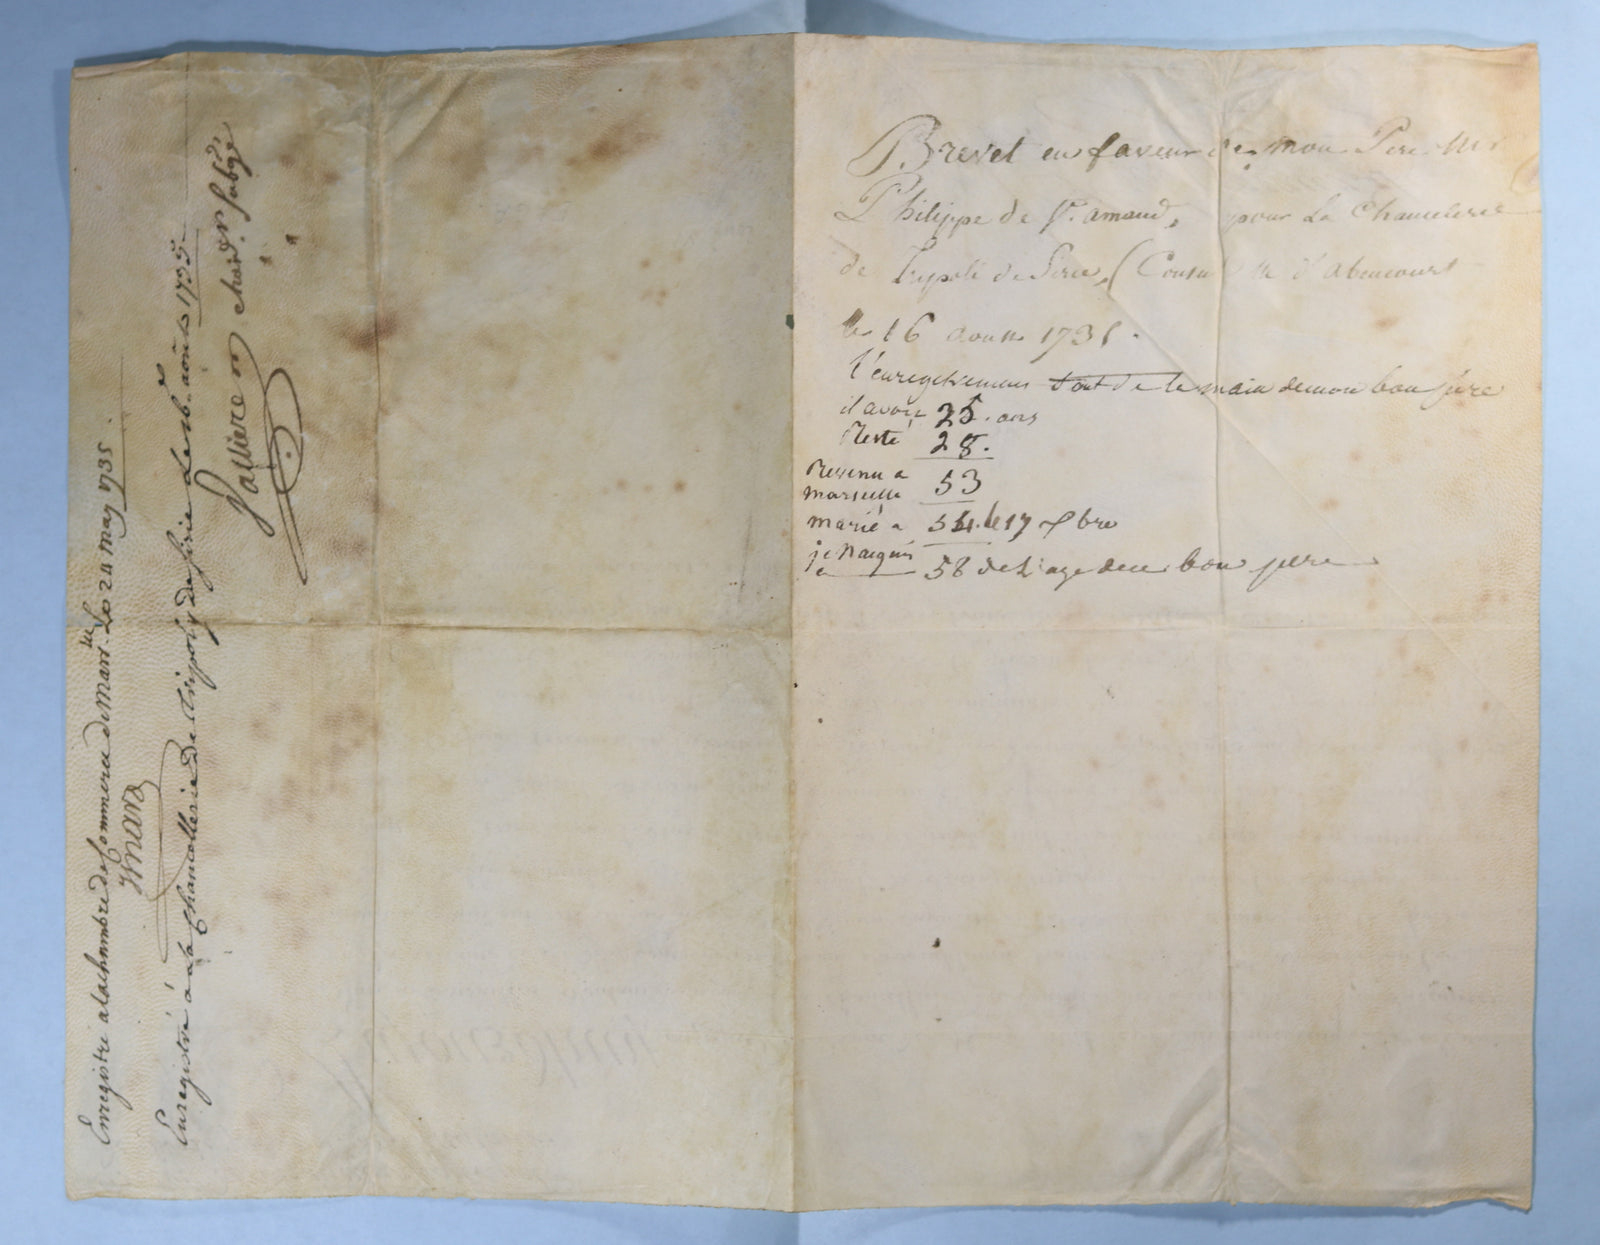 Enregistré a lachambre de Commerce de Mars.lle Le 24 may 1735.
Ysnard
Enregistré à la Chancellerie de tripoly de sirie Le 16. août 1735.
Vallieren chan.er
Brevet en faveur de mon Pere Mr
Philippe de St. amand, pour La Chancelerie
de Trypoli de Sirie, (Consul Mr d'abencourt
le 16 aoust 1735.
l'enregetremans tout de la main demon bon père
il avoit 25. ans
Resté 28.
Revenu a
marseille 53
marié a 54. le 17 bre
je Naquis
a 58 de L'age dece bon pere